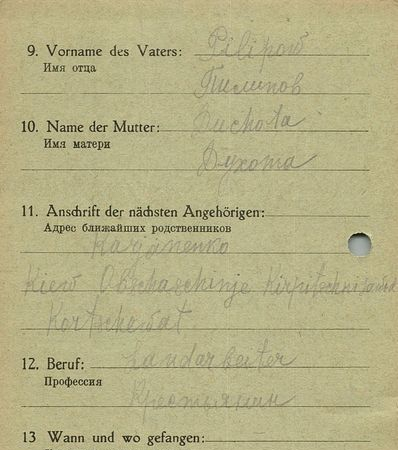 9. Vorname des Vaters: Pilipow
Имя отца
Пилипов
10. Name der Mutter: Duchota
Имя матери
Духота
11. Anschrift der nächsten Angehörigen:
Адрес ближайших родственников
Kiew Kirpitschni
Kortschewat
12. Beruf: Landarbeiter
Профессия
Крестьянин
13 Wann und wo gefangen: